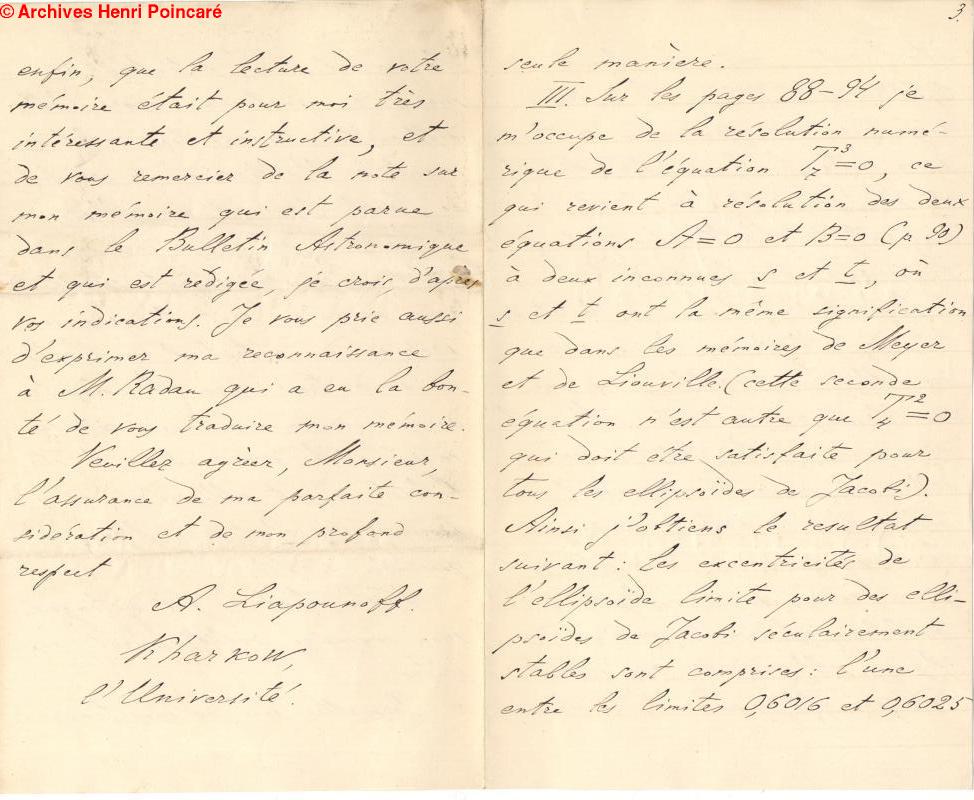 © Archives Henri Poincaré
enfin, que la lecture de votre
mémoire était pour moi très
intéressante et instructive, et
de vous remercier de la note sur
mon mémoire qui est parue
dans le Bulletin Astronomique
et qui est redigée, je crois, d'après
vos indications. Je vous prie aussi
d'exprimer ma reconnaissance
à M. Radau qui a eu la bon-
té de vous traduire mon mémoire.
Veuillez agréer, Monsieur,
l'assurance de ma parfaite con-
sidération et de mon profond
respect
A. Liapounoff.
Kharkow,
l'Université.
3.
seule manière.
III. Sur les pages 88–94 je
m'occupe de la résolution numé-
rique de l'équation T₇³=0, ce
qui revient à résolution des deux
équations A=0 et B=0 (p 90)
à deux inconnues s et t, où
s et t ont la même signification
que dans les mémoires de Meyer
et de Liouville. (cette seconde
équation n'est autre que T₄²=0
qui doit être satisfaite pour
tous les ellipsoïdes de Jacobi).
Ainsi j'obtiens le resultat
suivant: les excentricités de
l'ellipsoïde limite pour des elli-
psoïdes de Jacobi séculairement
stables sont comprises: l'une
entre les limites 0,6016 et 0,6025